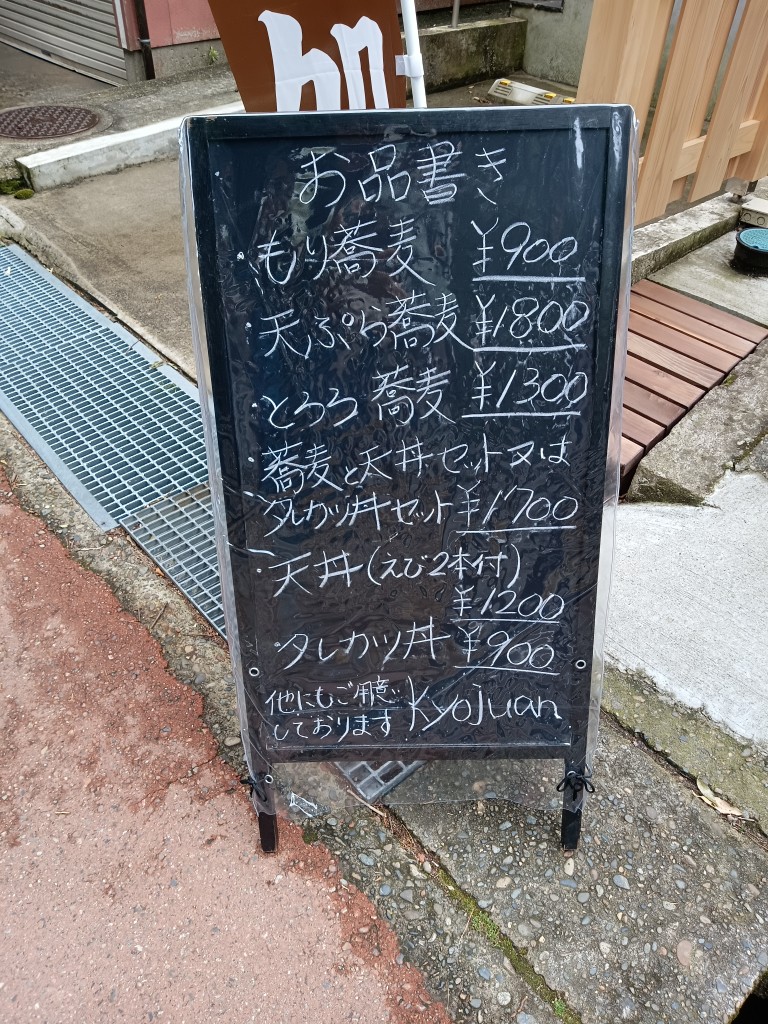 お品書き
・もり蕎麦 ¥900
・天ぷら蕎麦 ¥1800
・とろろ蕎麦 ¥1300
・蕎麦と天丼セット又は
タレカツ丼セット ¥1700
天丼(えび2本付)
¥1200
・タレカツ丼 ¥900
他にもご用意
しております
Kyojuan